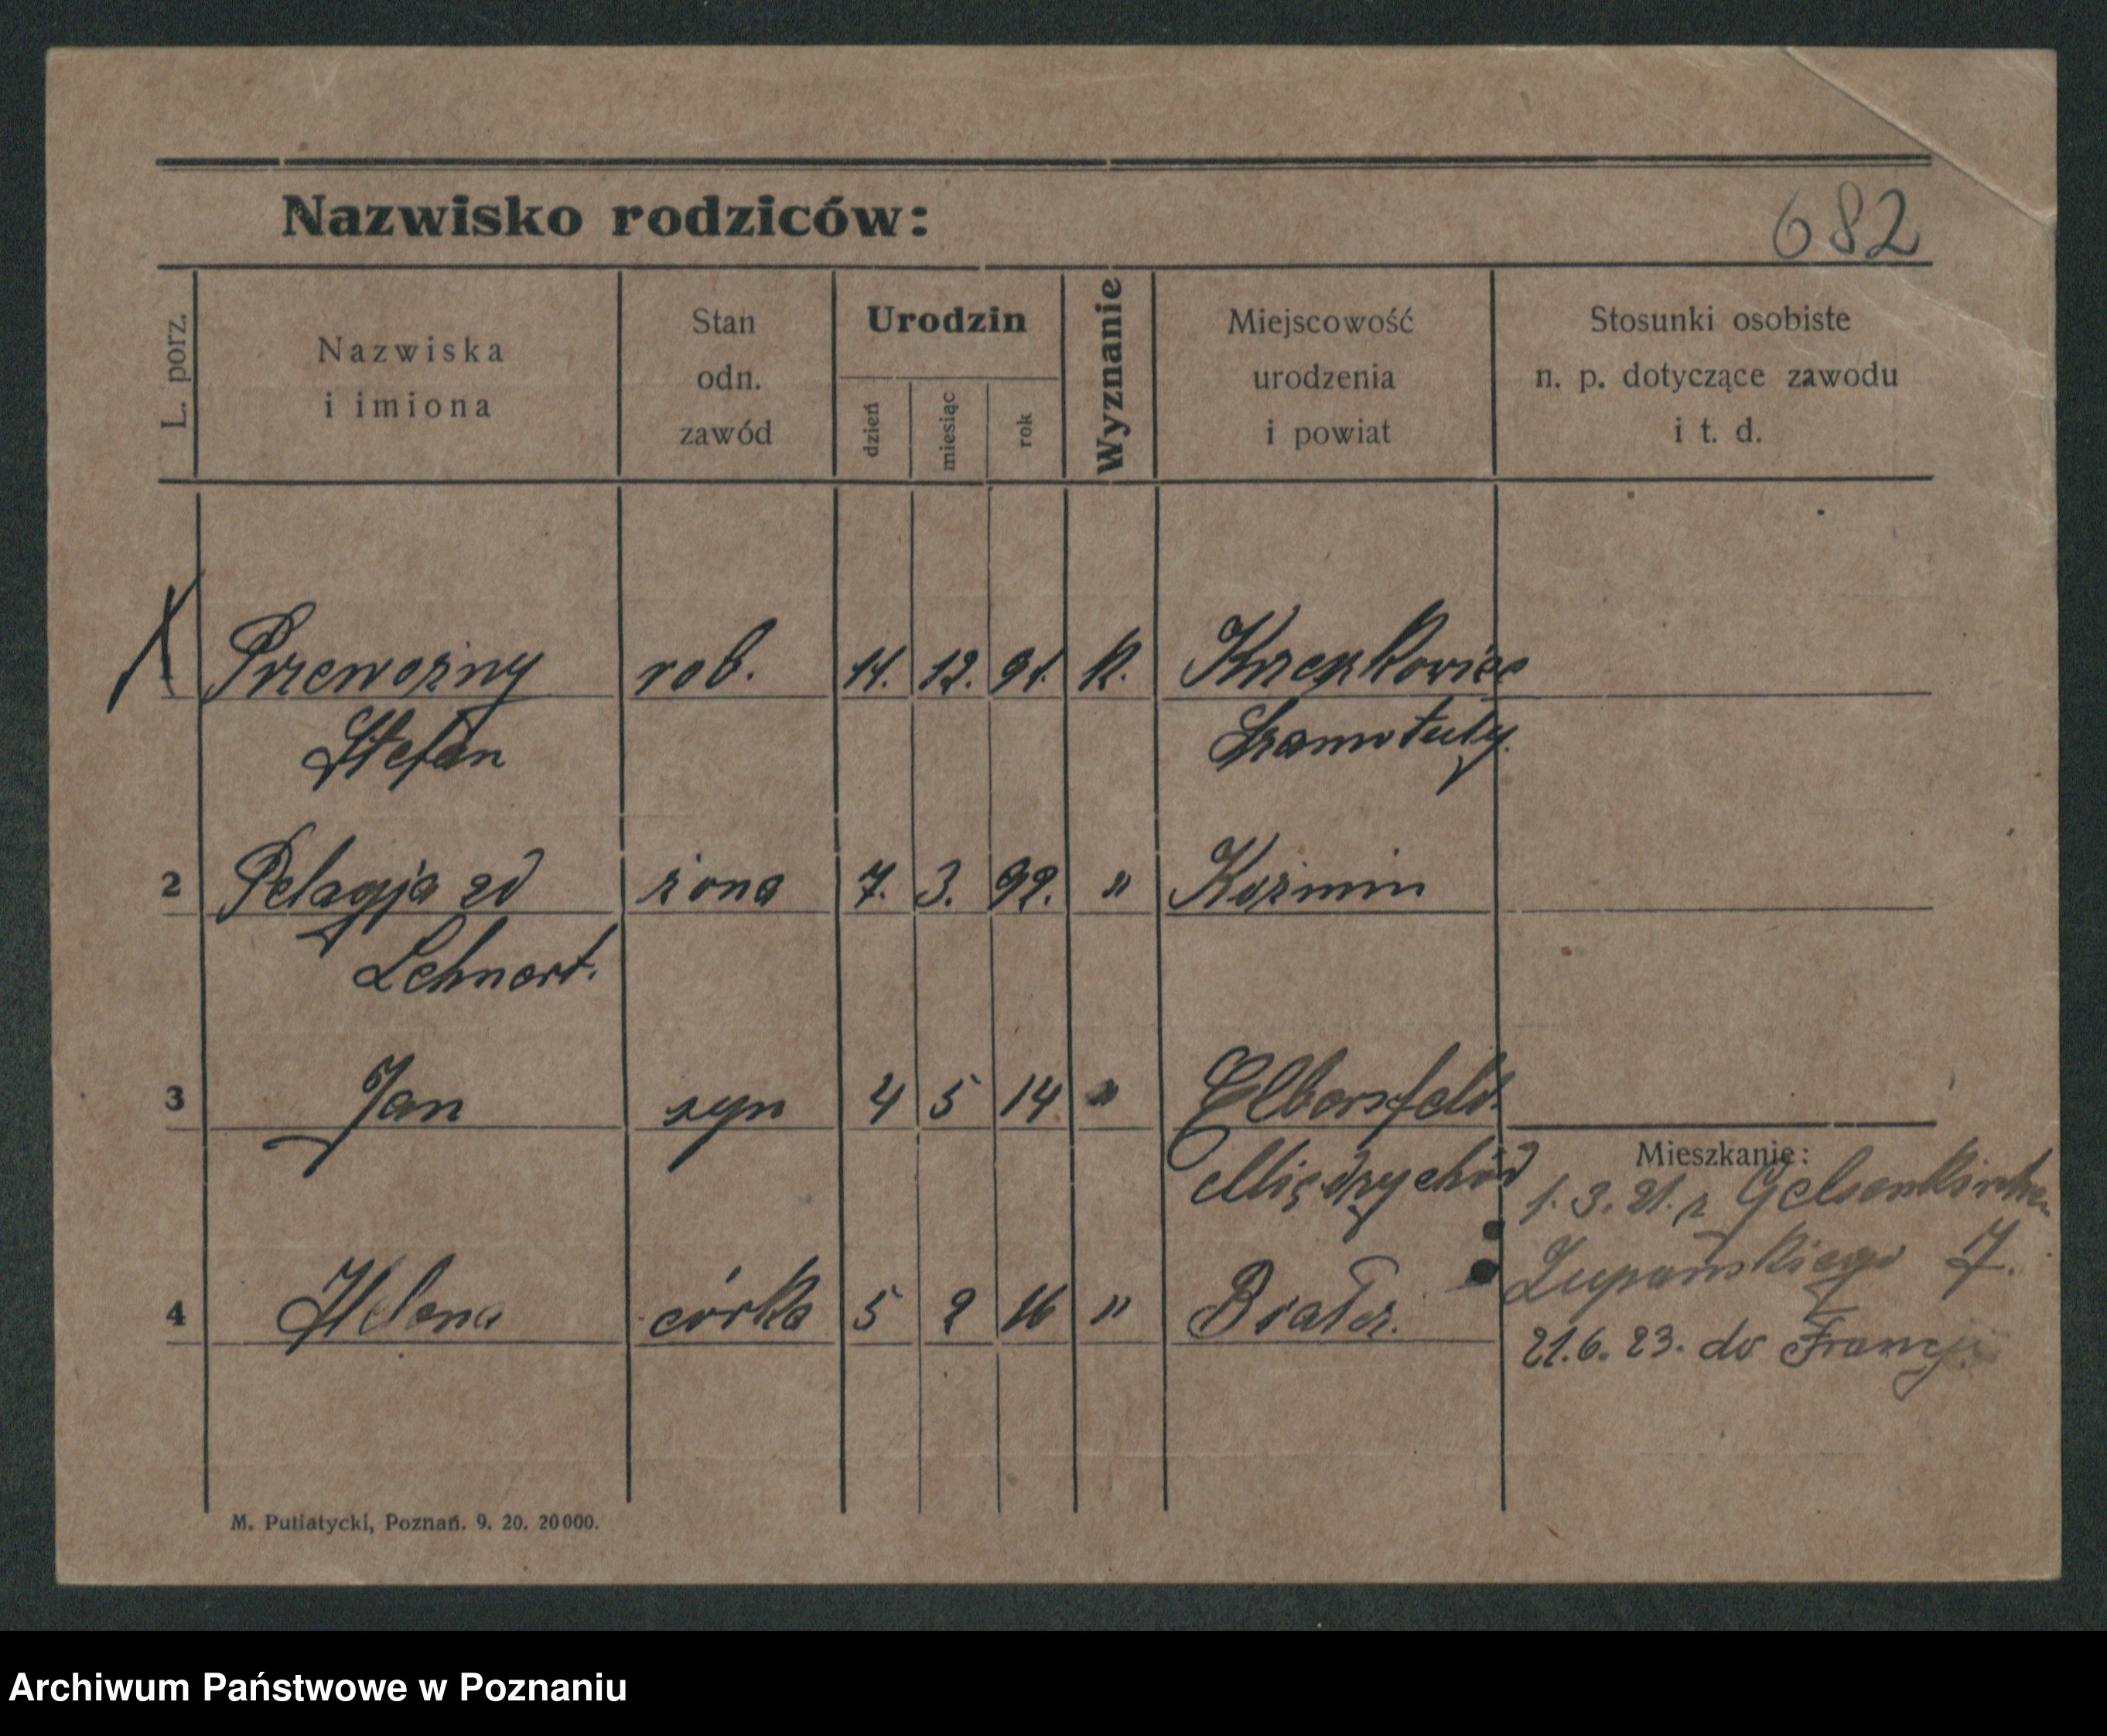 682
Nazwisko rodziców:
L. porz.
Nazwiska
i imiona
Stan
odn.
zawód
Urodzin
dzień
miesiąc
rok
Wyznanie
Miejscowość
urodzenia
i powiat
Stosunki osobiste
n. p. dotyczące zawodu
i t. d.
Przewoźny rob. 12. 91. k.
Stefan Szamotuły.
2 Pelagja zd żona 7. 3. 92. " Koźmin
Lehnert.
3 Jan syn 4 5 14 " Elberfeld.
Mieszkanie:
Międzychód 1. 3. 21. z Gelsenkirchen
Łupańskiego 7.
4 Helena córka 5 2 16 "
21. 6. 23. do Francji
M. Putiatycki, Poznań. 9. 20. 20000.
Archiwum Państwowe w Poznaniu